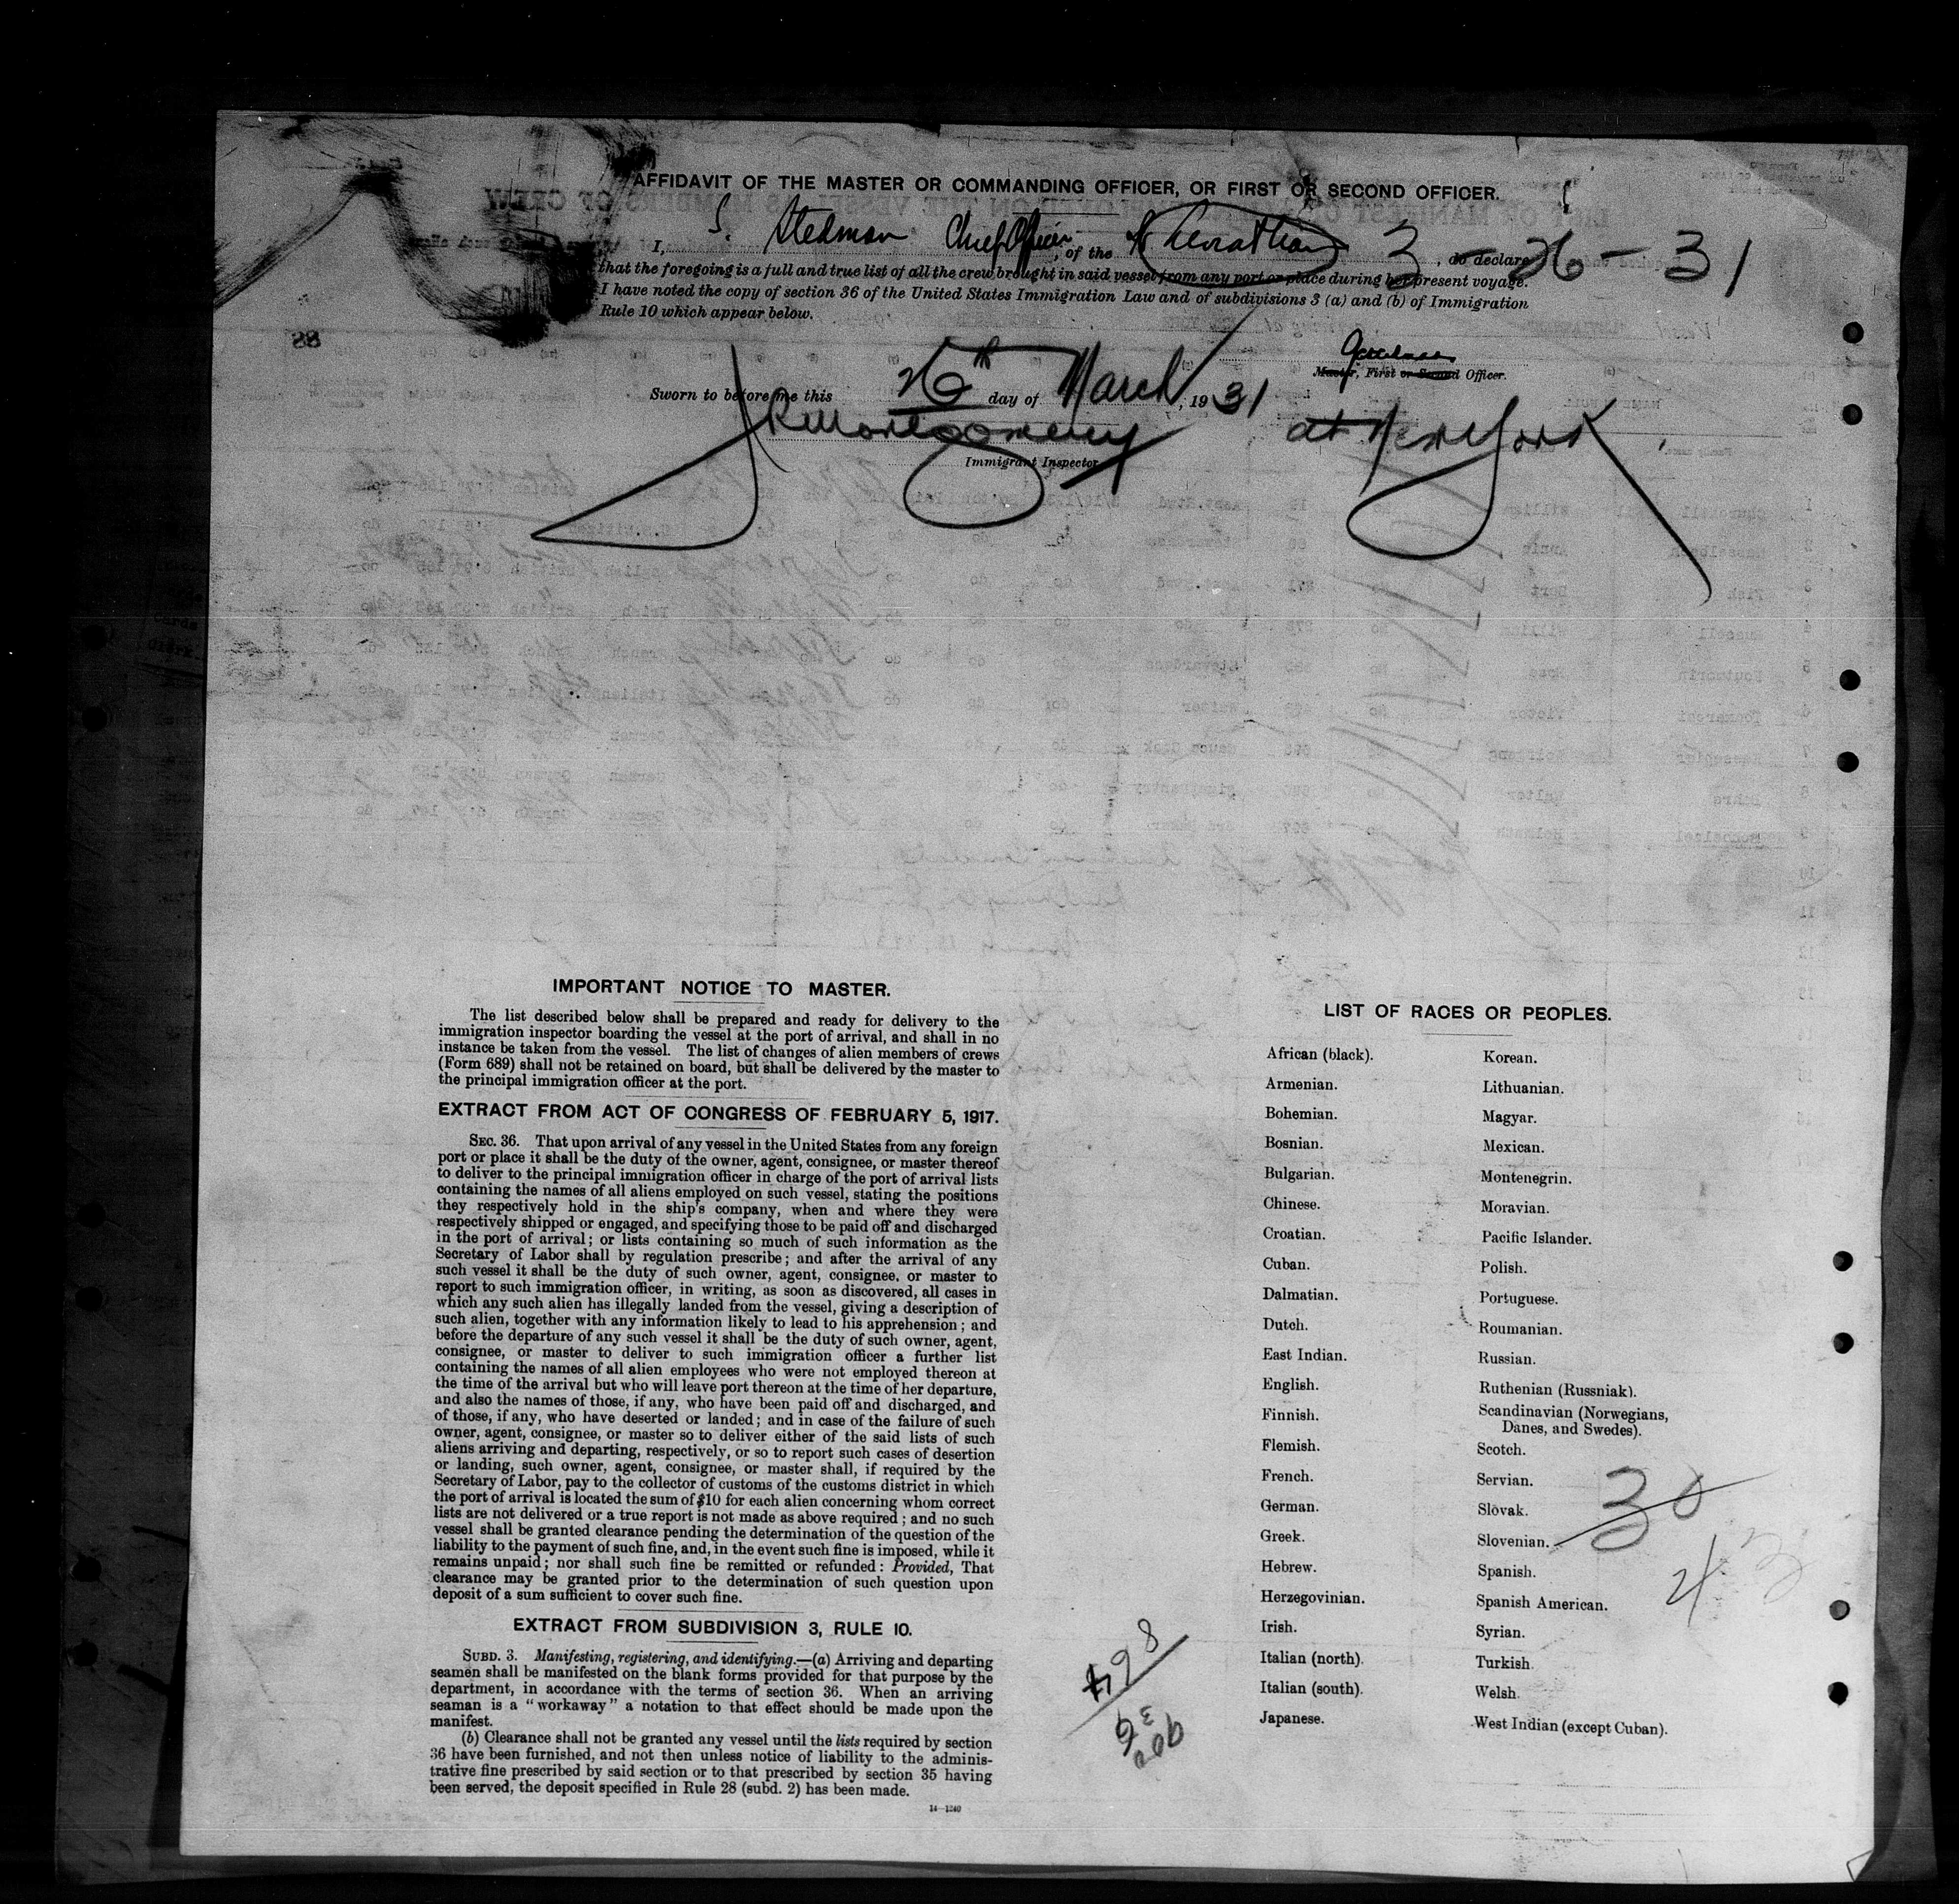 AFFIDAVIT OF THE MASTER OR COMMANDING OFFICER, OR FIRST OR SECOND OFFICER.
I, S. Stedman Chief Officer, of the SS Leviathan 3-26-31, do declare
that the foregoing is a full and true list of all the crew brought in said vessel from any port or place during her present voyage.
I have noted the copy of section 36 of the United States Immigration Law and of subdivisions 3 (a) and (b) of Immigration
Rule 10 which appear below.
Master, First or Second Officer.
Sworn to before me this 26th day of March, 1931 at New York
JRMontgomery
Immigrant Inspector
IMPORTANT NOTICE TO MASTER.
The list described below shall be prepared and ready for delivery to the
immigration inspector boarding the vessel at the port of arrival, and shall in no
instance be taken from the vessel. The list of changes of alien members of crews
(Form 689) shall not be retained on board, but shall be delivered by the master to
the principal immigration officer at the port.
EXTRACT FROM ACT OF CONGRESS OF FEBRUARY 5, 1917.
SEC. 36. That upon arrival of any vessel in the United States from any foreign
port or place it shall be the duty of the owner, agent, consignee, or master thereof
to deliver to the principal immigration officer in charge of the port of arrival lists
containing the names of all aliens employed on such vessel, stating the positions
they respectively hold in the ship's company, when and where they were
respectively shipped or engaged, and specifying those to be paid off and discharged
in the port of arrival; or lists containing so much of such information as the
Secretary of Labor shall by regulation prescribe; and after the arrival of any
such vessel it shall be the duty of such owner, agent, consignee, or master to
report to such immigration officer, in writing, as soon as discovered, all cases in
which any such alien has illegally landed from the vessel, giving a description of
such alien, together with any information likely to lead to his apprehension; and
before the departure of any such vessel it shall be the duty of such owner, agent,
consignee, or master to deliver to such immigration officer a further list
containing the names of all alien employees who were not employed thereon at
the time of the arrival but who will leave port thereon at the time of her departure,
and also the names of those, if any, who have been paid off and discharged, and
of those, if any, who have deserted or landed; and in case of the failure of such
owner, agent, consignee, or master so to deliver either of the said lists of such
aliens arriving and departing, respectively, or so to report such cases of desertion
or landing, such owner, agent, consignee, or master shall, if required by the
Secretary of Labor, pay to the collector of customs of the customs district in which
the port of arrival is located the sum of $10 for each alien concerning whom correct
lists are not delivered or a true report is not made as above required; and no such
vessel shall be granted clearance pending the determination of the question of the
liability to the payment of such fine, and, in the event such fine is imposed, while it
remains unpaid; nor shall such fine be remitted or refunded: Provided, That
clearance may be granted prior to the determination of such question upon
deposit of a sum sufficient to cover such fine.
EXTRACT FROM SUBDIVISION 3, RULE 10.
SUBD. 3. Manifesting, registering, and identifying.—(a) Arriving and departing
seamen shall be manifested on the blank forms provided for that purpose by the
department, in accordance with the terms of section 36. When an arriving
seaman is a "workaway" a notation to that effect should be made upon the
manifest.
(b) Clearance shall not be granted any vessel until the lists required by section
36 have been furnished, and not then unless notice of liability to the adminis-
trative fine prescribed by said section or to that prescribed by section 35 having
been served, the deposit specified in Rule 28 (subd. 2) has been made.
14—1240
LIST OF RACES OR PEOPLES.
African (black).
Armenian.
Bohemian.
Bosnian.
Bulgarian.
Chinese.
Croatian.
Cuban.
Dalmatian.
Dutch.
East Indian.
English.
Finnish.
Flemish.
French.
German.
Greek.
Hebrew.
Herzegovinian.
Irish.
Italian (north).
Italian (south).
Japanese.
Korean.
Lithuanian.
Magyar.
Mexican.
Montenegrin.
Moravian.
Pacific Islander.
Polish.
Portuguese.
Roumanian.
Russian.
Ruthenian (Russniak).
Scandinavian (Norwegians,
Danes, and Swedes).
Scotch.
Servian.
Slovak.
Slovenian.
Spanish.
Spanish American.
Syrian.
Turkish.
Welsh.
West Indian (except Cuban).
30
43